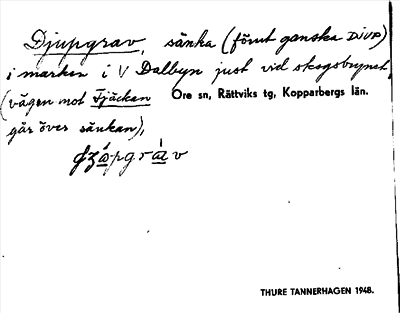 Djupgrav, sänka (förut ganska DJUP)
i marken i V Dalbyn just vid skogsbrynet
(vägen mot Fjäckan Ore sn, Rättviks tg, Kopparbergs län.
går över sänkan),
THURE TANNERHAGEN 1948.